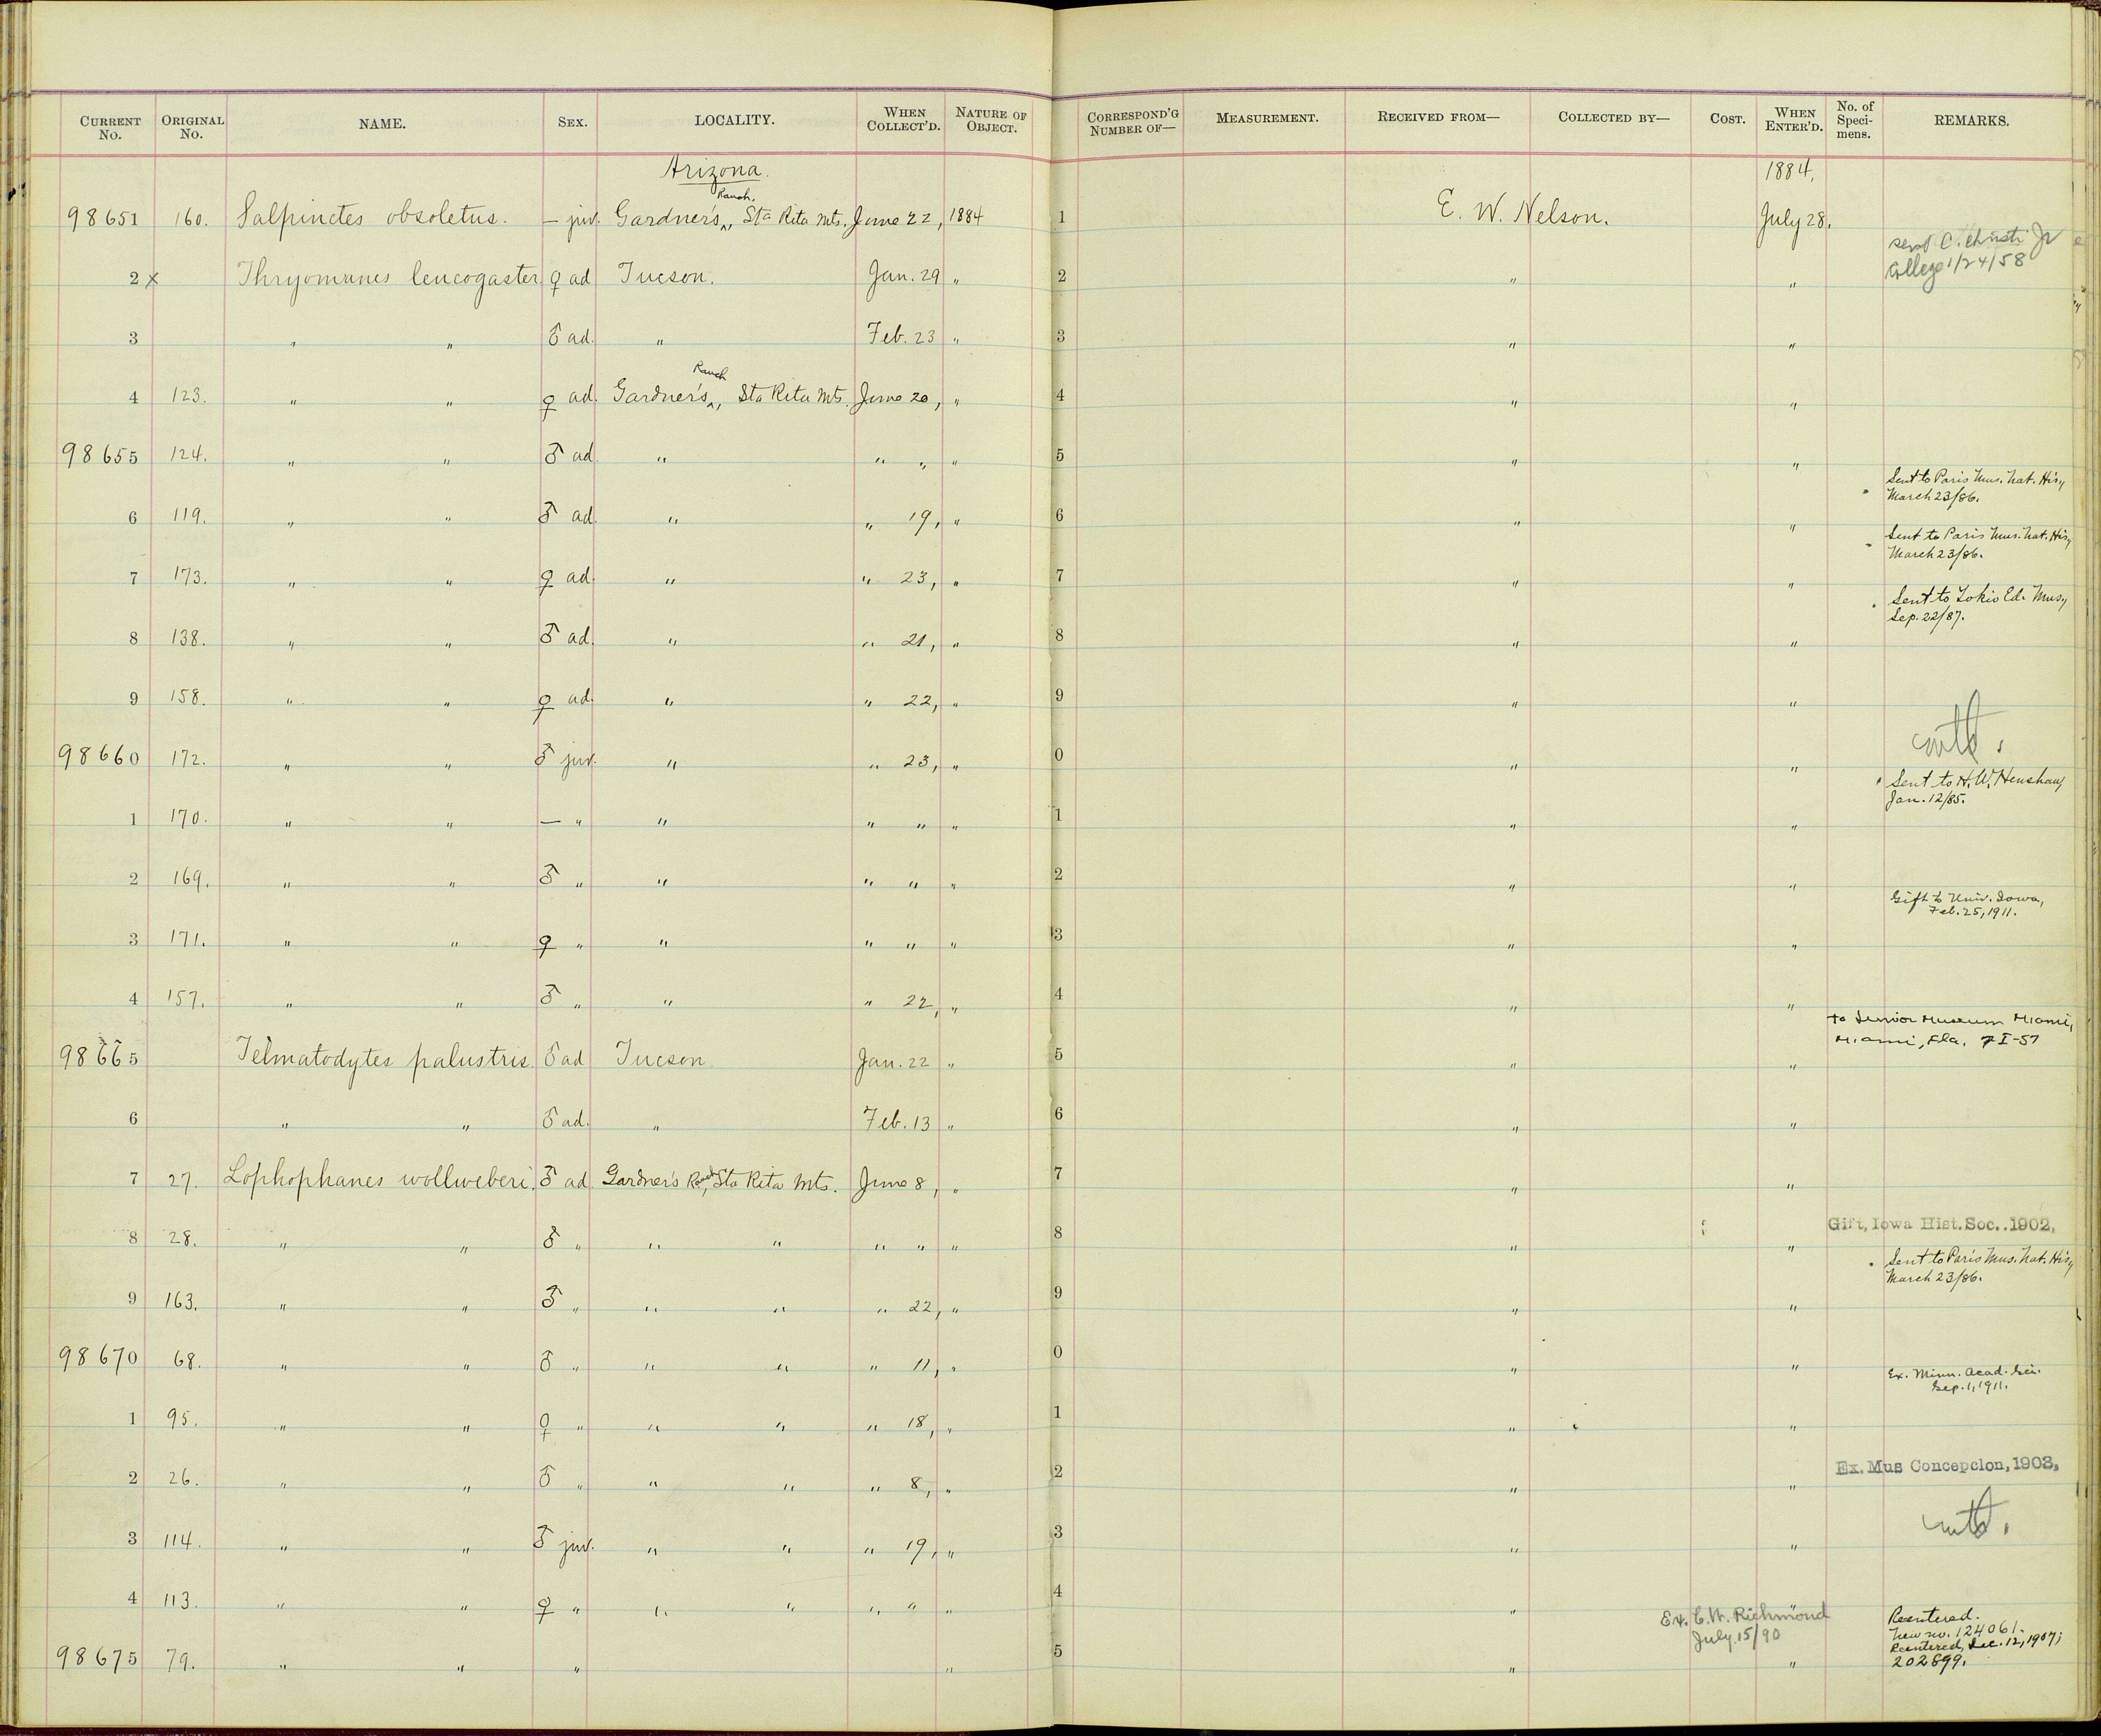 CURRENT No. ORIGINAL No. NAME. SEX. LOCALITY. WHEN COLLECT'D. NATURE OF OBJECT. CORRESPOND'G NUMBER OF— MEASUREMENT. RECEIVED FROM— COLLECTED BY— COST. WHEN ENTER'D. No. of Specimens. REMARKS.
Arizona. 1884.
98651 160. Salpinctes obsoletus. — juv. Gardner's Ranch, Sta Rita Mts. June 22, 1884 1 E. W. Nelson. July 28.
sent C. Christi Jr
College 1/24/58
2 x Thryomanes leucogaster ♀ ad Tucson. Jan. 29 " 2 " "
3 " " ♂ ad. " Feb. 23 " 3 " "
4 123. " " ♀ ad. Gardner's Ranch, Sta Rita Mts. June 20, " 4 " "
98655 124. " " ♂ ad. " " " " 5 " "
Sent to Paris Mus. Nat. His,
March 23/86.
6 119. " " ♂ ad. " " 19, " 6 " "
Sent to Paris Mus. Nat. His,
March 23/86.
7 173. " " ♀ ad. " " 23, " 7 " "
Sent to Tokio Ed. Mus,
Sep. 22/87.
8 138. " " ♂ ad. " " 21, " 8 " "
9 158. " " ♀ ad. " " 22, " 9 " "
98660 172. " " ♂ juv. " " 23, " 0 " "
Sent to H. W. Henshaw,
Jan. 12/85.
1 170. " " — " " " " " 1 " "
2 169. " " ♂ " " " " " 2 " "
Gift to Univ. Iowa,
Feb. 25, 1911.
3 171. " " ♀ " " " " " 3 " "
4 157. " " ♂ " " " 22, " 4 " "
To Junior Museum Miami,
Miami, Fla. 7 I-57
98665 Telmatodytes palustris. ♂ ad Tucson Jan. 22 " 5 " "
6 " " ♂ ad. " Feb. 13 " 6 " "
7 27. Lophophanes wollweberi. ♂ ad Gardner's Ranch, Sta Rita Mts. June 8, " 7 " "
Gift, Iowa Hist. Soc. .1902,
8 28. " " ♂ " " " " " " 8 " "
Sent to Paris Mus. Nat. His,
March 23/86.
9 163. " " ♂ " " " " 22, " 9 " "
98670 68. " " ♂ " " " " 11, " 0 " "
Ex. Minn. Acad. Sci.
Sep. 1, 1911.
1 95. " " ♀ " " " " 18, " 1 " "
Ex. Mus Concepcion, 1903,
2 26. " " ♂ " " " " 8, " 2 " "
3 114. " " ♂ juv. " " " 19, " 3 " "
4 113. " " ♀ " " " " " " 4 " "
Ex. C. W. Richmond
July 15/90
Reentered.
New no. 124061.
Reentered, Dec. 12, 1907;
202899.
98675 79. " " " " 5 " "